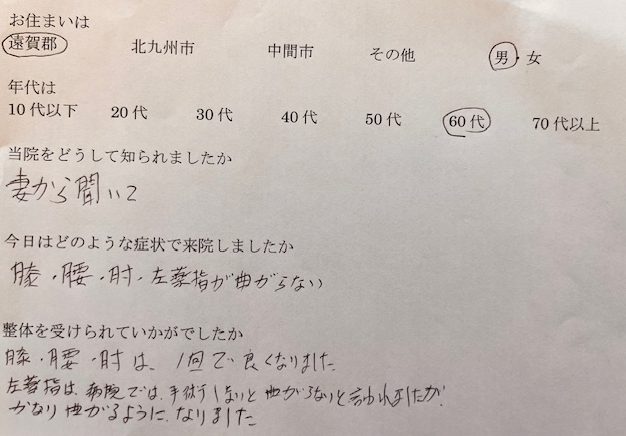 お住まいは
遠賀郡 北九州市 中間市 その他 男・女
年代は
10代以下 20代 30代 40代 50代 60代 70代以上
当院をどうして知られましたか
妻から聞いて
今日はどのような症状で来院しましたか
膝・腰・肘・左薬指が曲がらない
整体を受けられていかがでしたか
膝・腰・肘は、1回で良くなりました
左薬指は、病院では、手術しないと曲がらないと言われましたが、
かなり曲がるようになりました